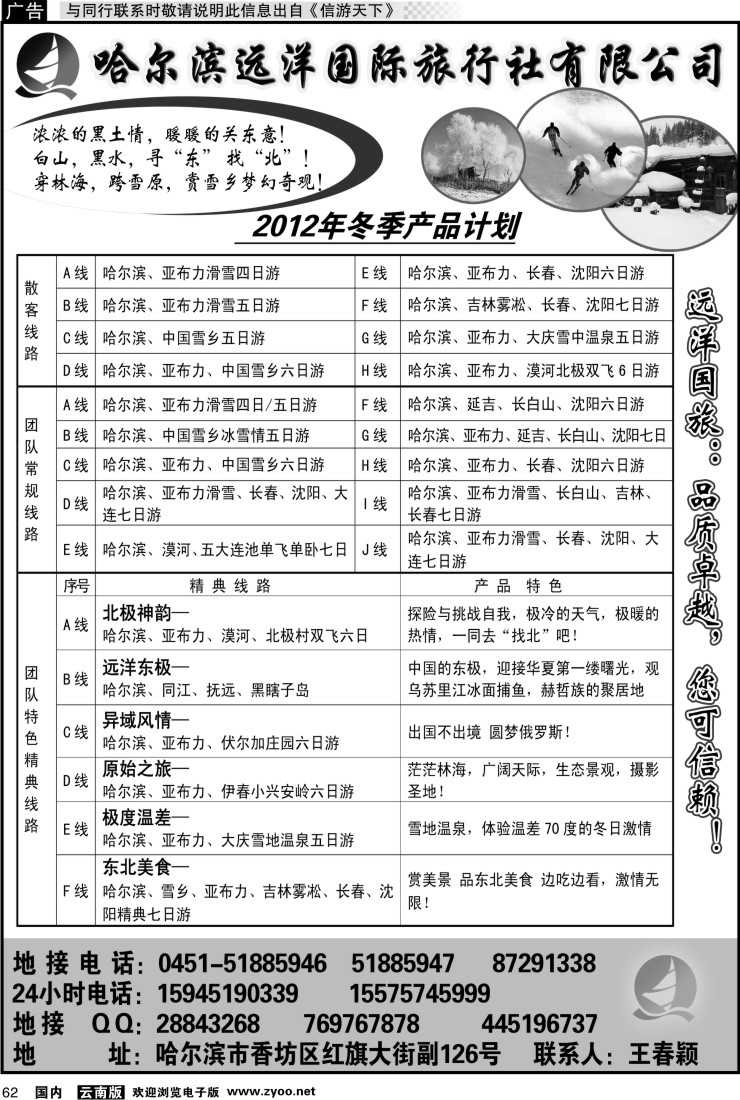 广告 与同行联系时敬请说明此信息出自《信游天下》
哈尔滨远洋国际旅行社有限公司
浓浓的黑土情，暖暖的关东意！
白山，黑水，寻“东”找“北”！
穿林海，跨雪原，赏雪乡梦幻奇观！
2012年冬季产品计划
散客线路
A线 哈尔滨、亚布力滑雪四日游 E线 哈尔滨、亚布力、长春、沈阳六日游
B线 哈尔滨、亚布力滑雪五日游 F线 哈尔滨、吉林雾凇、长春、沈阳七日游
C线 哈尔滨、中国雪乡五日游 G线 哈尔滨、亚布力、大庆雪中温泉五日游
D线 哈尔滨、亚布力、中国雪乡六日游 H线 哈尔滨、亚布力、漠河北极双飞6日游
团队常规线路
A线 哈尔滨、亚布力滑雪四日/五日游 F线 哈尔滨、延吉、长白山、沈阳六日游
B线 哈尔滨、中国雪乡冰雪情五日游 G线 哈尔滨、亚布力、延吉、长白山、沈阳七日
C线 哈尔滨、亚布力、中国雪乡六日游 H线 哈尔滨、亚布力、长春、沈阳六日游
D线 哈尔滨、亚布力滑雪、长春、沈阳、大
连七日游
I线 哈尔滨、亚布力滑雪、长白山、吉林、
长春七日游
E线 哈尔滨、漠河、五大连池单飞单卧七日
J线 哈尔滨、亚布力滑雪、长春、沈阳、大
连七日游
团队特色精典线路
序号 精典线路 产品 特色
A线 北极神韵—
哈尔滨、亚布力、漠河、北极村双飞六日
探险与挑战自我，极冷的天气，极暖的
热情，一同去“找北”吧！
B线 远洋东极—
哈尔滨、同江、抚远、黑瞎子岛
中国的东极，迎接华夏第一缕曙光，观
乌苏里江冰面捕鱼，赫哲族的聚居地
C线 异域风情—
哈尔滨、亚布力、伏尔加庄园六日游
出国不出境 圆梦俄罗斯！
D线 原始之旅—
哈尔滨、亚布力、伊春小兴安岭六日游
茫茫林海，广阔天际，生态景观，摄影
圣地！
E线 极度温差—
哈尔滨、亚布力、大庆雪地温泉五日游
雪地温泉，体验温差70度的冬日激情
F线 东北美食—
哈尔滨、雪乡、亚布力、吉林雾凇、长春、沈
阳精典七日游
赏美景 品东北美食 边吃边看，激情无
限！
远洋国旅：品质卓越，您可信赖！
地接电话：0451-51885946 51885947 87291338
24小时电话：15945190339 15575745999
地接 QQ：28843268 769767878 445196737
地 址：哈尔滨市香坊区红旗大街副126号 联系人：王春颖
62 国内 云南版 欢迎浏览电子版 www.zyoo.net